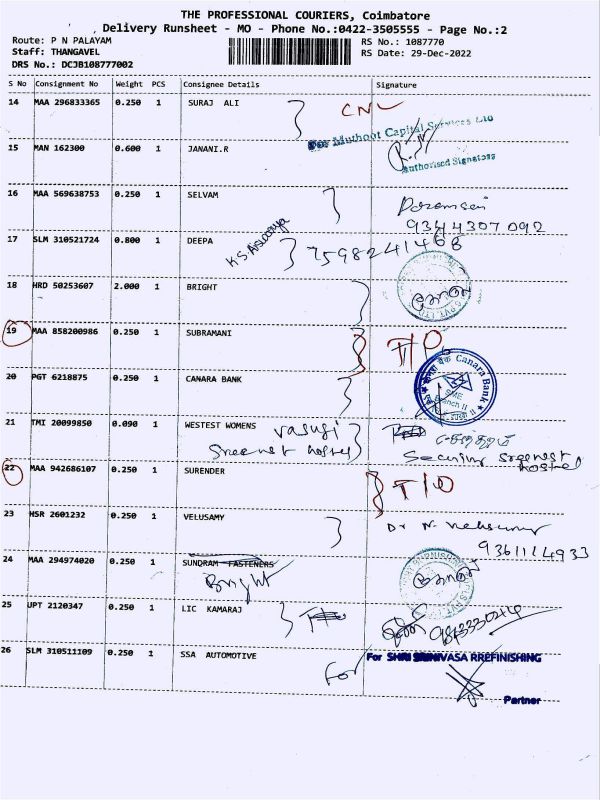 THE PROFESSIONAL COURIERS, Coimbatore
Delivery Runsheet - MO - Phone No.:0422-3505555 - Page No.:2
Route: P N PALAYAM
RS No.: 1087770
Staff: THANGAVEL
RS Date: 29-Dec-2022
DRS No.: DCJB108777002
S No Consignment No Weight PCS Consignee Details Signature
14 MAA 296833365 0.250 1 SURAJ ALI
For Muthoot Capital Services Ltd
15 MAN 162300 0.600 1 JANANI.R
Authorised Signatory
16 MAA 569638753 0.250 1 SELVAM
9344307092
17 SLM 310521724 0.800 1 DEEPA K.S Aiswarya 7598241468
18 HRD 50253607 2.000 1 BRIGHT
19 MAA 858200986 0.250 1 SUBRAMANI
20 PGT 6218875 0.250 1 CANARA BANK
Canara Bank
SME
Branch II
21 TMI 20099850 0.090 1 WESTEST WOMENS vasugi
Sreenest hostel
Security sreenest hostel
22 MAA 942686107 0.250 1 SURENDER
23 HSR 2601232 0.250 1 VELUSAMY
9361114933
24 MAA 294974020 0.250 1 SUNDRAM FASTENERS
Bright
25 UPT 2120347 0.250 1 LIC KAMARAJ
26 SLM 310511109 0.250 1 SSA AUTOMOTIVE For
For SHRI SRINIVASA RREFINISHING
Partner